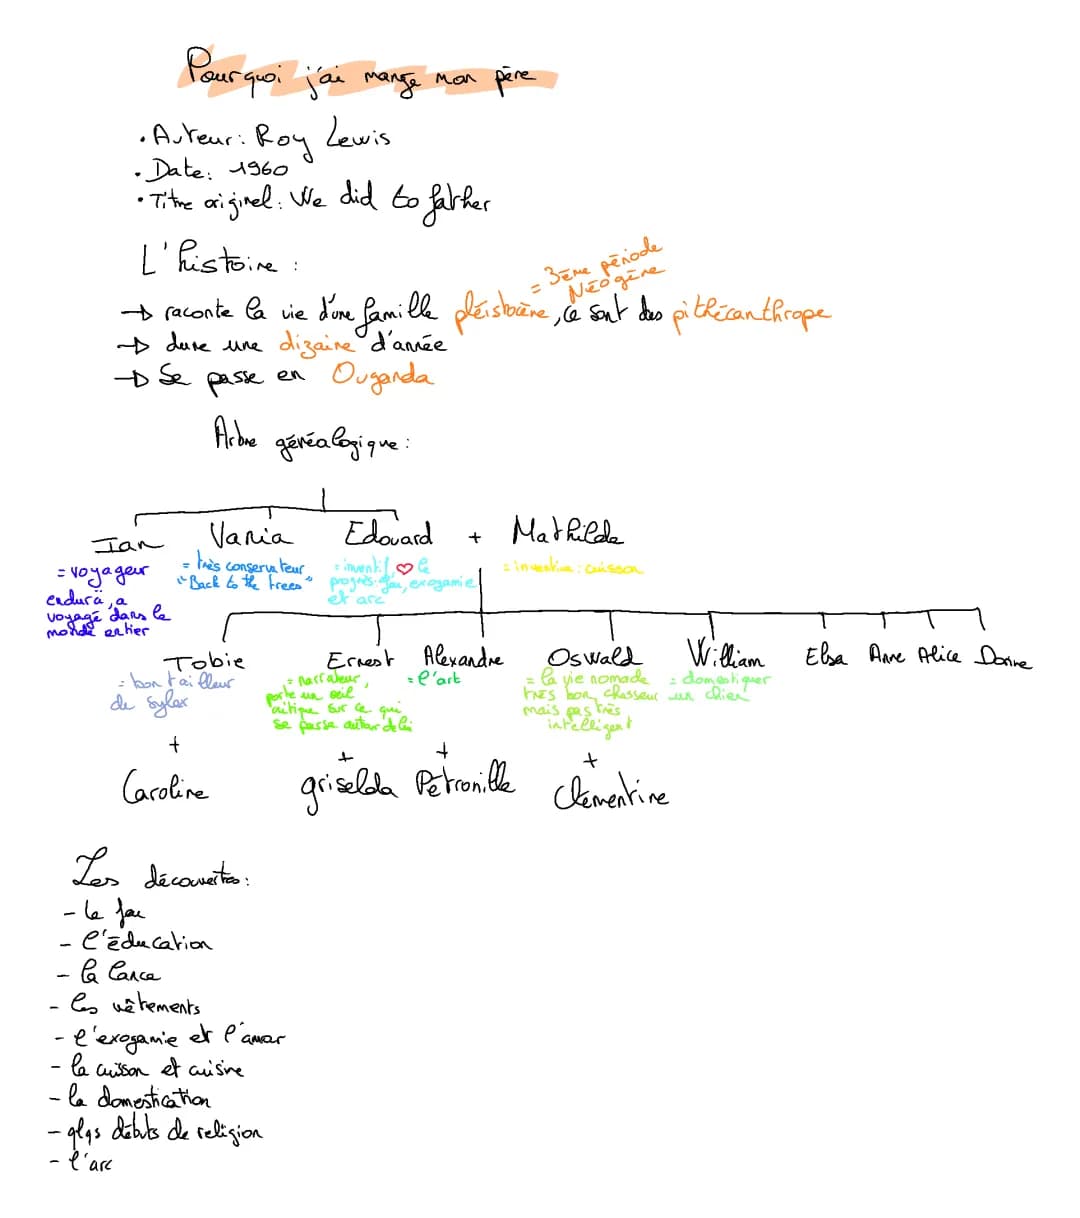 Pourquoi j'ai mangé mon père
• Auteur: Roy Lewis
• Date: 1960
• Titre originel: We did to father
L'histoire :
= 3ème période
Néogène
→ raconte la vie d'une famille pléistocène, ce sont des pithécanthrope
→ dure une dizaine d'année
→ Se passe en Ouganda
Arbre généalogique :
Ian Vania Edouard + Mathilde
= voyageur
endura, a
voyagé dans le
monde entier
= très conservateur
"Back to the trees"
= inventif ♡ le
progrès: feu, exogamie
et arc
= inventive : cuisson
Tobie Ernest Alexandre Oswald William Elsa Anne Alice Dorine
= bon tailleur
de sylex
= narrateur,
porte un oeil
critique sur ce qui
se passe autour de lui
= l'art
= la vie nomade
très bon chasseur
mais pas très
intelligent
= domestiquer
un chien
+ + + +
Caroline griselda Pétronille Clémentine
Les découvertes :
- le feu
- l'éducation
- la lance
- les vêtements
- l'exogamie et l'amour
- la cuisson et cuisine
- la domestication
- qlqs débuts de religion
- l'arc